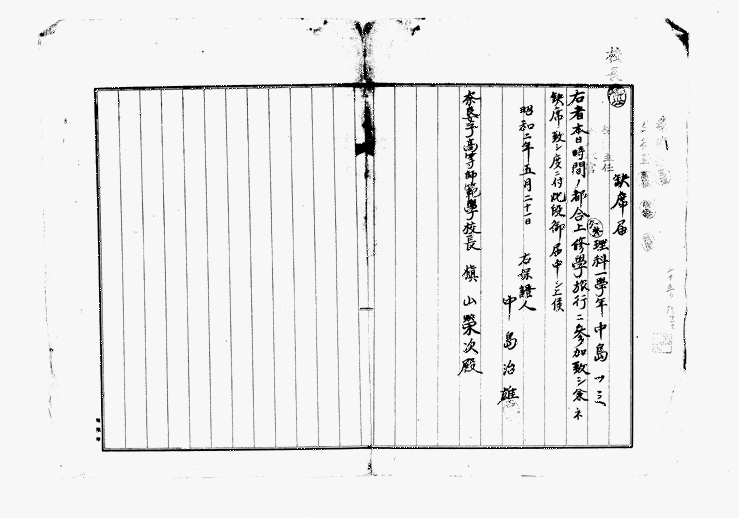 校長
主任
缺席届
理科一學年 中島 ツミ
右者本日時間ノ都合上修學旅行ニ參加致シ兼ネ
缺席致シ度ニ付此段御届申シ上候
昭和二年五月二十一日
右保證人
中島治雄
奈良女子高等師範學校長 槇山榮次殿